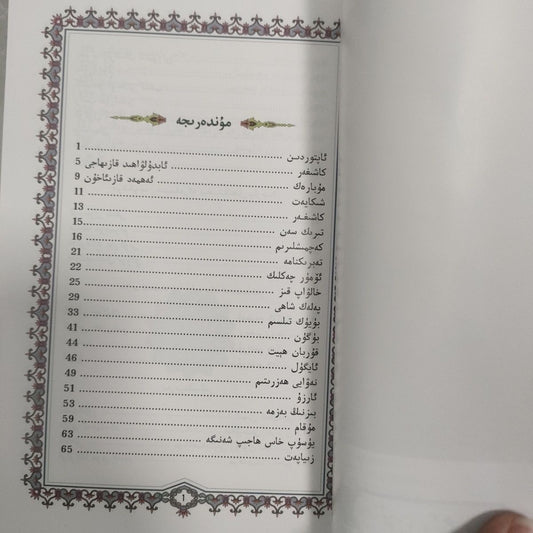 مۇندەرىجە
ئاپتوردىن ........ 1
كاشغەر ........ ئابدۇلۋاھىد قازىھاجى 5
مۇبارەك ........ ئەھمەد قازىئاخۇن 9
شىكايەت ........ 11
كاشىغەر ........ 13
تىرىك سەن ........ 15
كەچمىشلىرىم ........ 16
تەبرىكنامە ........ 21
ئۆمۈر چەكلىك ........ 22
خالۋاپ قىز ........ 25
پەلەك شاھى ........ 29
بۈيۈك تىلسىم ........ 33
بۈگۈن ........ 41
قۇربان ھېيت ........ 44
ئايگۈل ........ 46
نەۋايى ھەزرىتىم ........ 49
ئارزۇ ........ 51
بىزنىڭ بەزمە ........ 53
مۇقام ........ 59
يۈسۈپ خاس ھاجىپ شەنىگە ........ 63
زىياپەت ........ 65
1